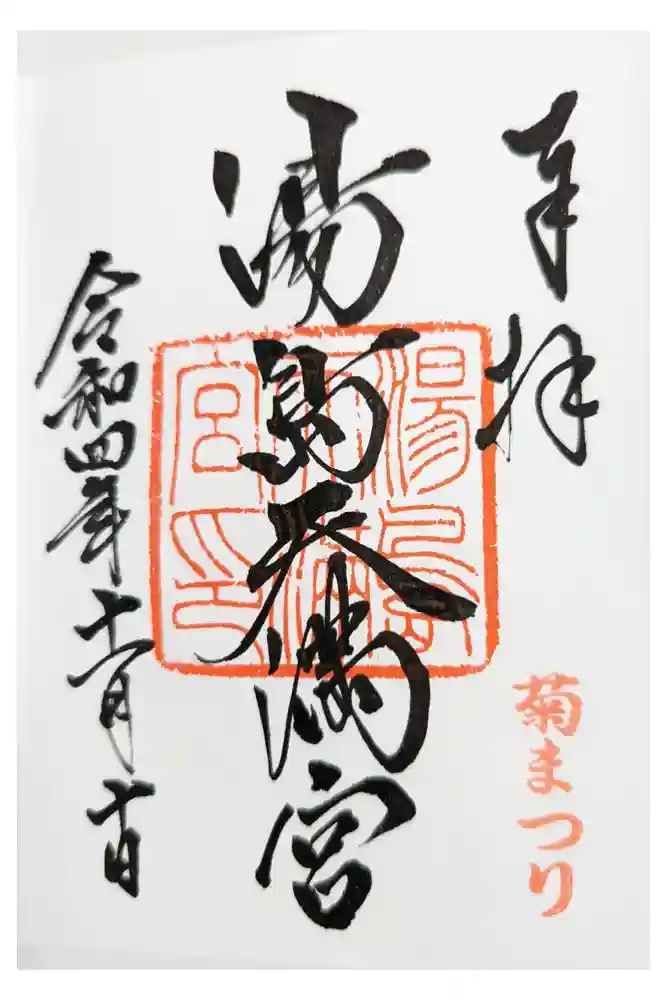 奉拝
菊まつり
湯島天満宮
湯島天満宮印
令和四年十一月十日